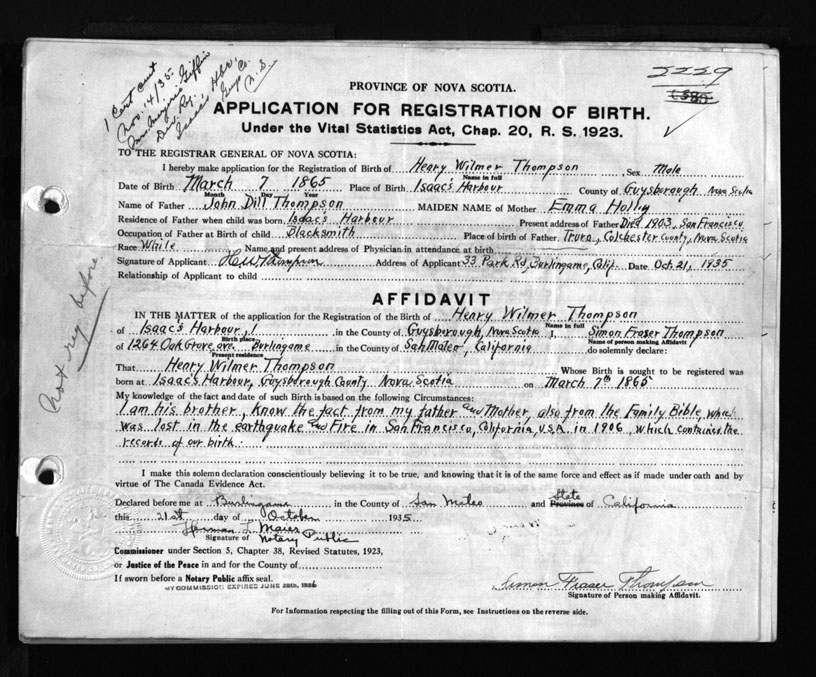 1 Cert cent
Nov. 14/35.
Giffin
Div. Reg.,
Isaacs Hbr.
Guy Co.
N. S.
2229
PROVINCE OF NOVA SCOTIA.
APPLICATION FOR REGISTRATION OF BIRTH.
Under the Vital Statistics Act, Chap. 20, R. S. 1923.
TO THE REGISTRAR GENERAL OF NOVA SCOTIA:
I hereby make application for the Registration of Birth of Henry Wilmer Thompson Sex Male
Name in full
Date of Birth March 7 1865 Place of Birth Isaac's Harbour County of Guysborough Nova Scotia
Month Day Year
Name of Father John Dill Thompson MAIDEN NAME of Mother Emma Holly
Residence of Father when child was born Isaac's Harbour Present address of Father Died 1903, San Francisco
Occupation of Father at Birth of child Blacksmith Place of birth of Father. Truro, Colchester County, Nova Scotia
Race White Name and present address of Physician in attendance at birth
Signature of Applicant H W Thompson Address of Applicant 33 Park Rd, Burlingame, Calif. Date Oct. 21, 1935
Relationship of Applicant to child
Not reg before
AFFIDAVIT
IN THE MATTER of the application for the Registration of the Birth of Henry Wilmer Thompson
Name in full
of Isaac's Harbour, in the County of Guysborough, Nova Scotia I, Simon Fraser Thompson
Birth place Name of person making Affidavit
of 1264 Oak Grove ave. Burlingame in the County of San Mateo, California do solemnly declare:
Present residence
That Henry Wilmer Thompson Whose Birth is sought to be registered was
born at Isaac's Harbour, Guysborough County Nova Scotia on March 7th 1865
My knowledge of the fact and date of such Birth is based on the following Circumstances:
I am his brother, know the fact from my father and Mother, also from the Family Bible, which
was lost in the earthquake and Fire in San Francisco, California, U.S.A. in 1906, which contained the
records of our birth.
I make this solemn declaration conscientiously believing it to be true, and knowing that it is of the same force and effect as if made under oath and by
virtue of The Canada Evidence Act.
State
Declared before me at Burlingame in the County of San Mateo and Province of California
this 21st day of October 1935
Herman J. Maier
Signature of Notary Public
Commissioner under Section 5, Chapter 38, Revised Statutes, 1923,
or Justice of the Peace in and for the County of
If sworn before a Notary Public affix seal.
MY COMMISSION EXPIRES JUNE 28th, 1936
Simon Fraser Thompson
Signature of Person making Affidavit.
For Information respecting the filling out of this Form, see Instructions on the reverse side.